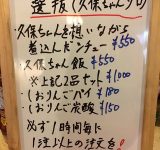 選抜(久保ちゃんプロ
久保ちゃんを想いながら
煮込んだシチュー ¥550
久保ちゃん飯 ¥550
※上記2品セット ¥1000
(おりんごパイ ¥180
(おりんご炭酸 ¥150
必ず1時間毎に
1注以上の注文を